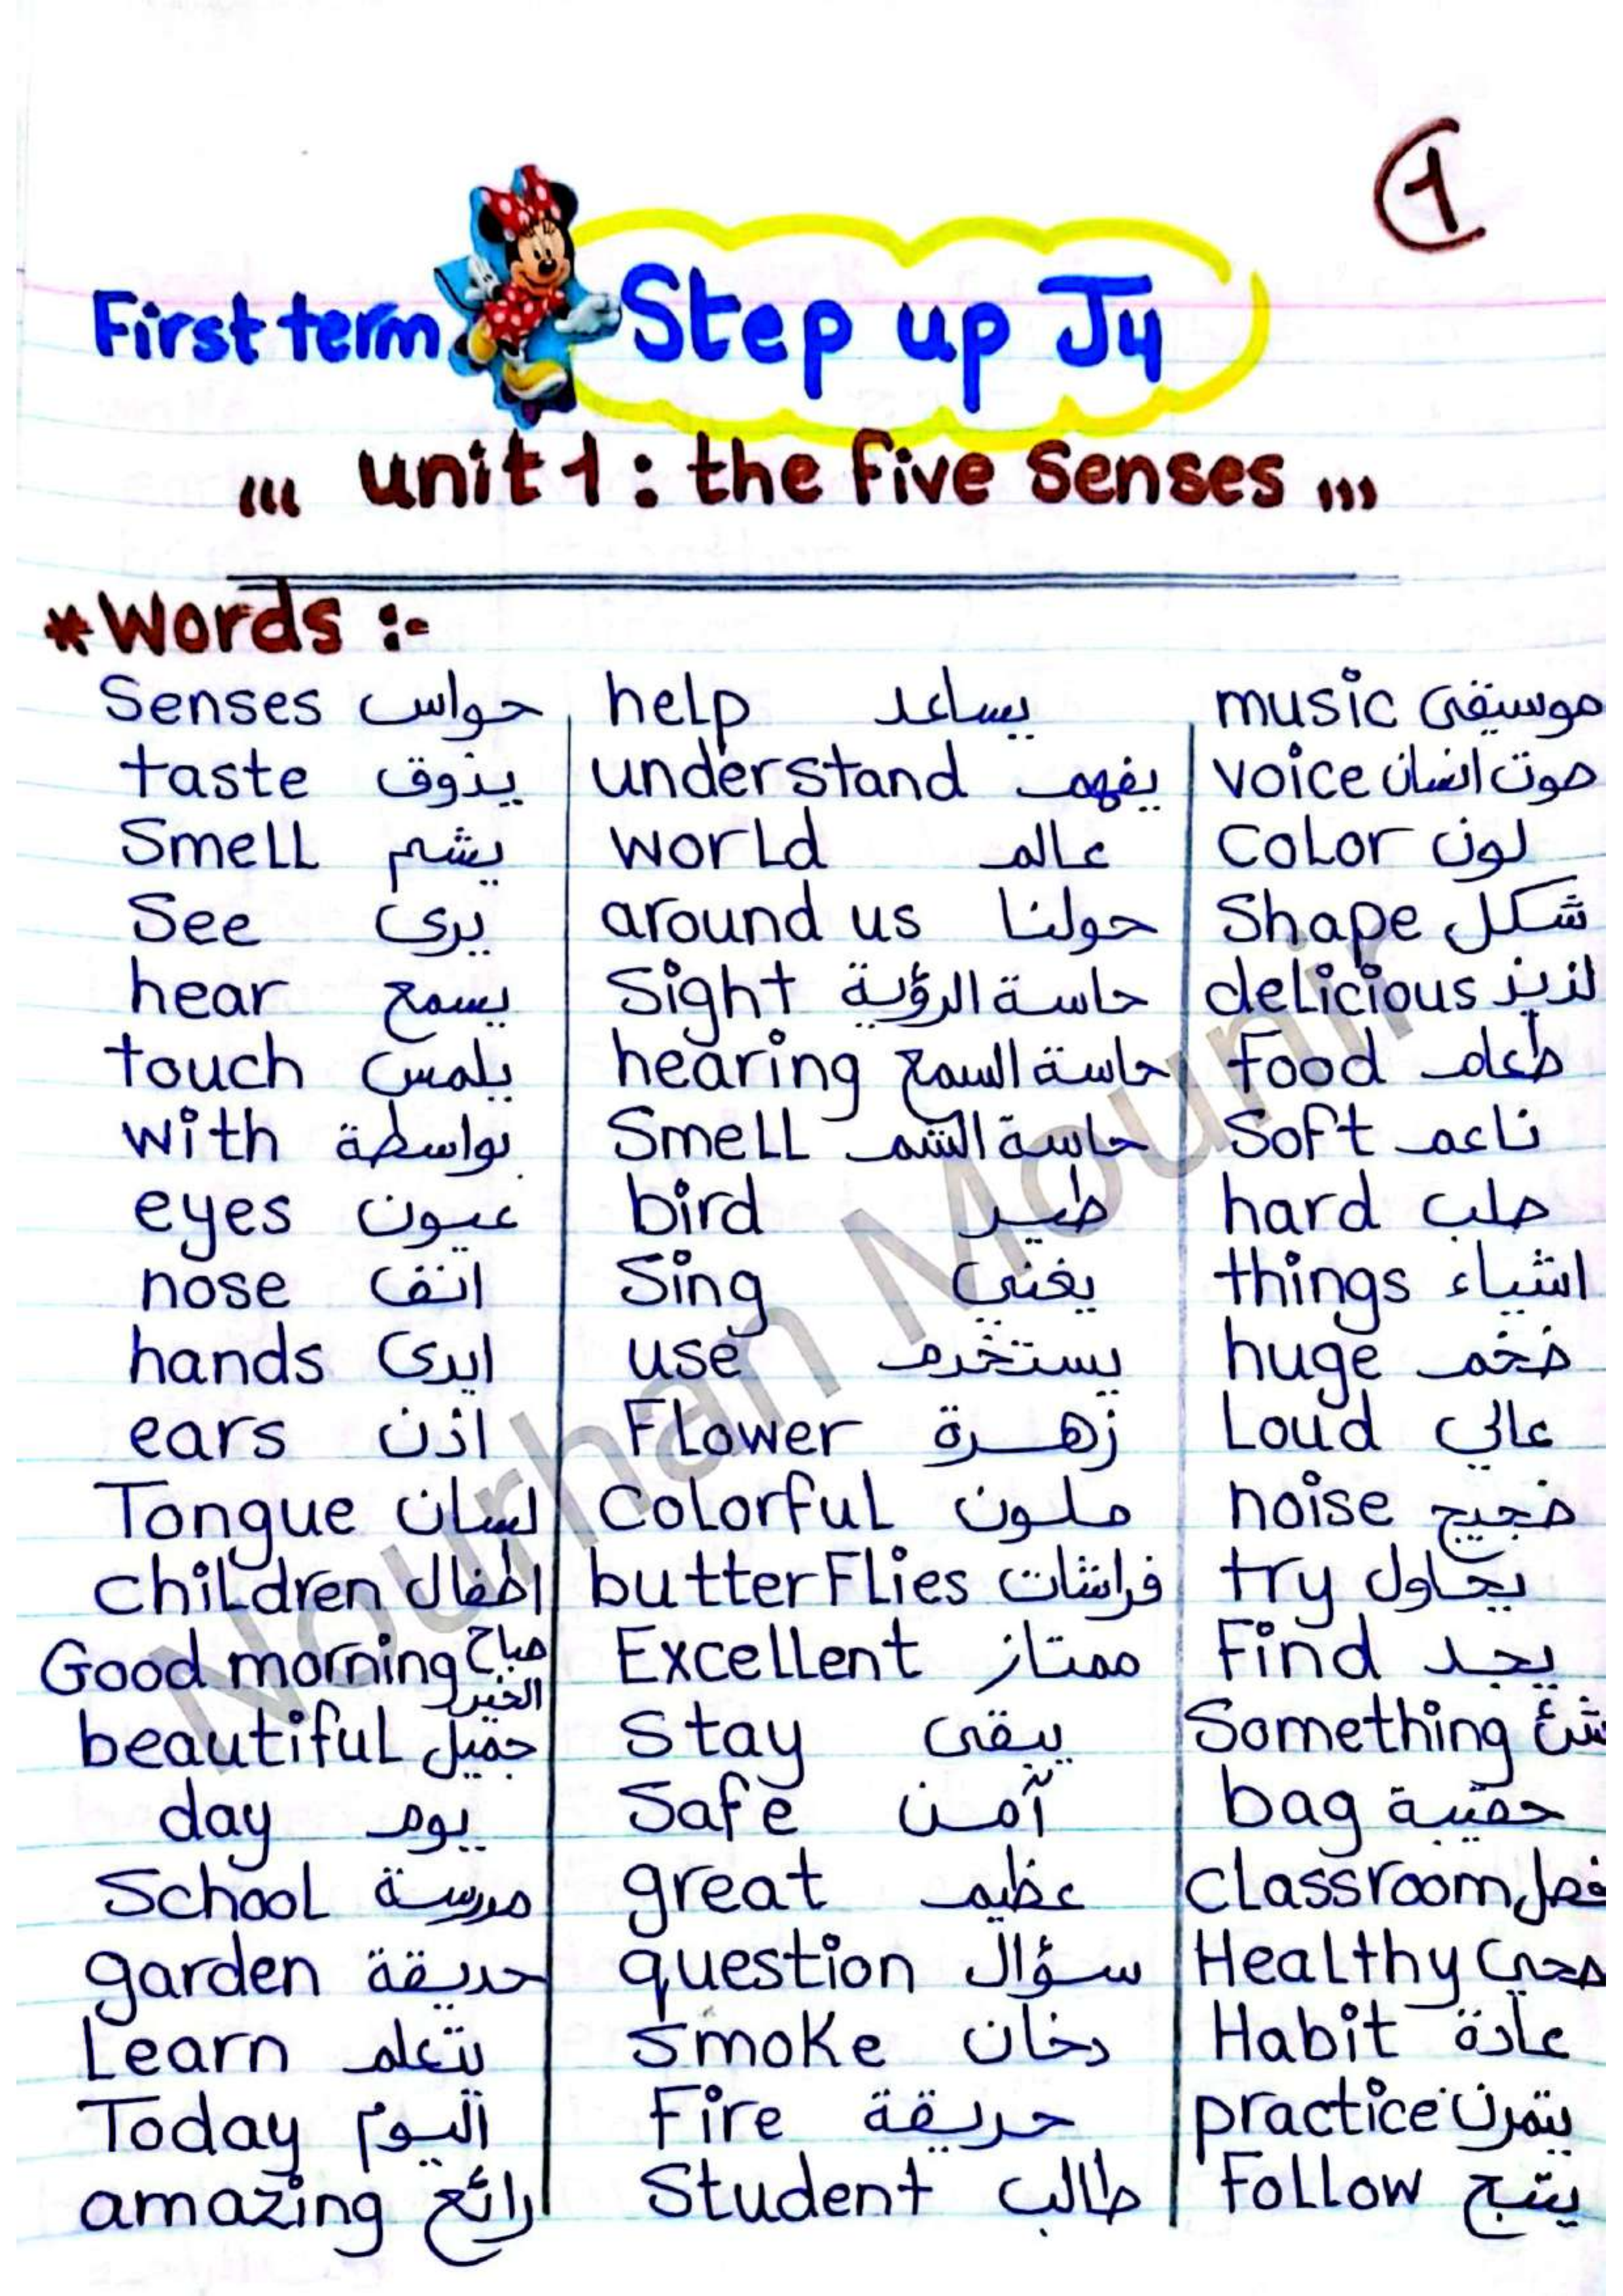 1
First term Step up J4
unit 1 : the five Senses
*Words :-
Senses حواس help يساعد music موسيقى
taste يذوق understand يفهم voice صوت انسان
Smell يشم world عالم color لون
See يرى around us حولنا Shape شكل
hear يسمع Sight حاسة الرؤية delicious لذيذ
touch يلمس hearing حاسة السمع food طعام
with بواسطة Smell حاسة الشم Soft ناعم
eyes عيون bird طير hard صلب
nose انف Sing يغني things اشياء
hands ايدى use يستخدم huge ضخم
ears اذن Flower زهرة Loud عالي
Tongue لسان colorful ملون noise ضجيج
children اطفال butterFlies فراشات try يحاول
Good morning صباح الخير Excellent ممتاز Find يجد
beautiful جميل Stay يبقى Something شئ
day يوم Safe آمن bag حقيبة
School مدرسة great عظيم classroom فصل
garden حديقة question سؤال Healthy صحي
Learn يتعلم Smoke دخان Habit عادة
Today اليوم Fire حريقة practice يتمرن
amazing رائع Student طالب Follow يتبع
Nourhan Mounir